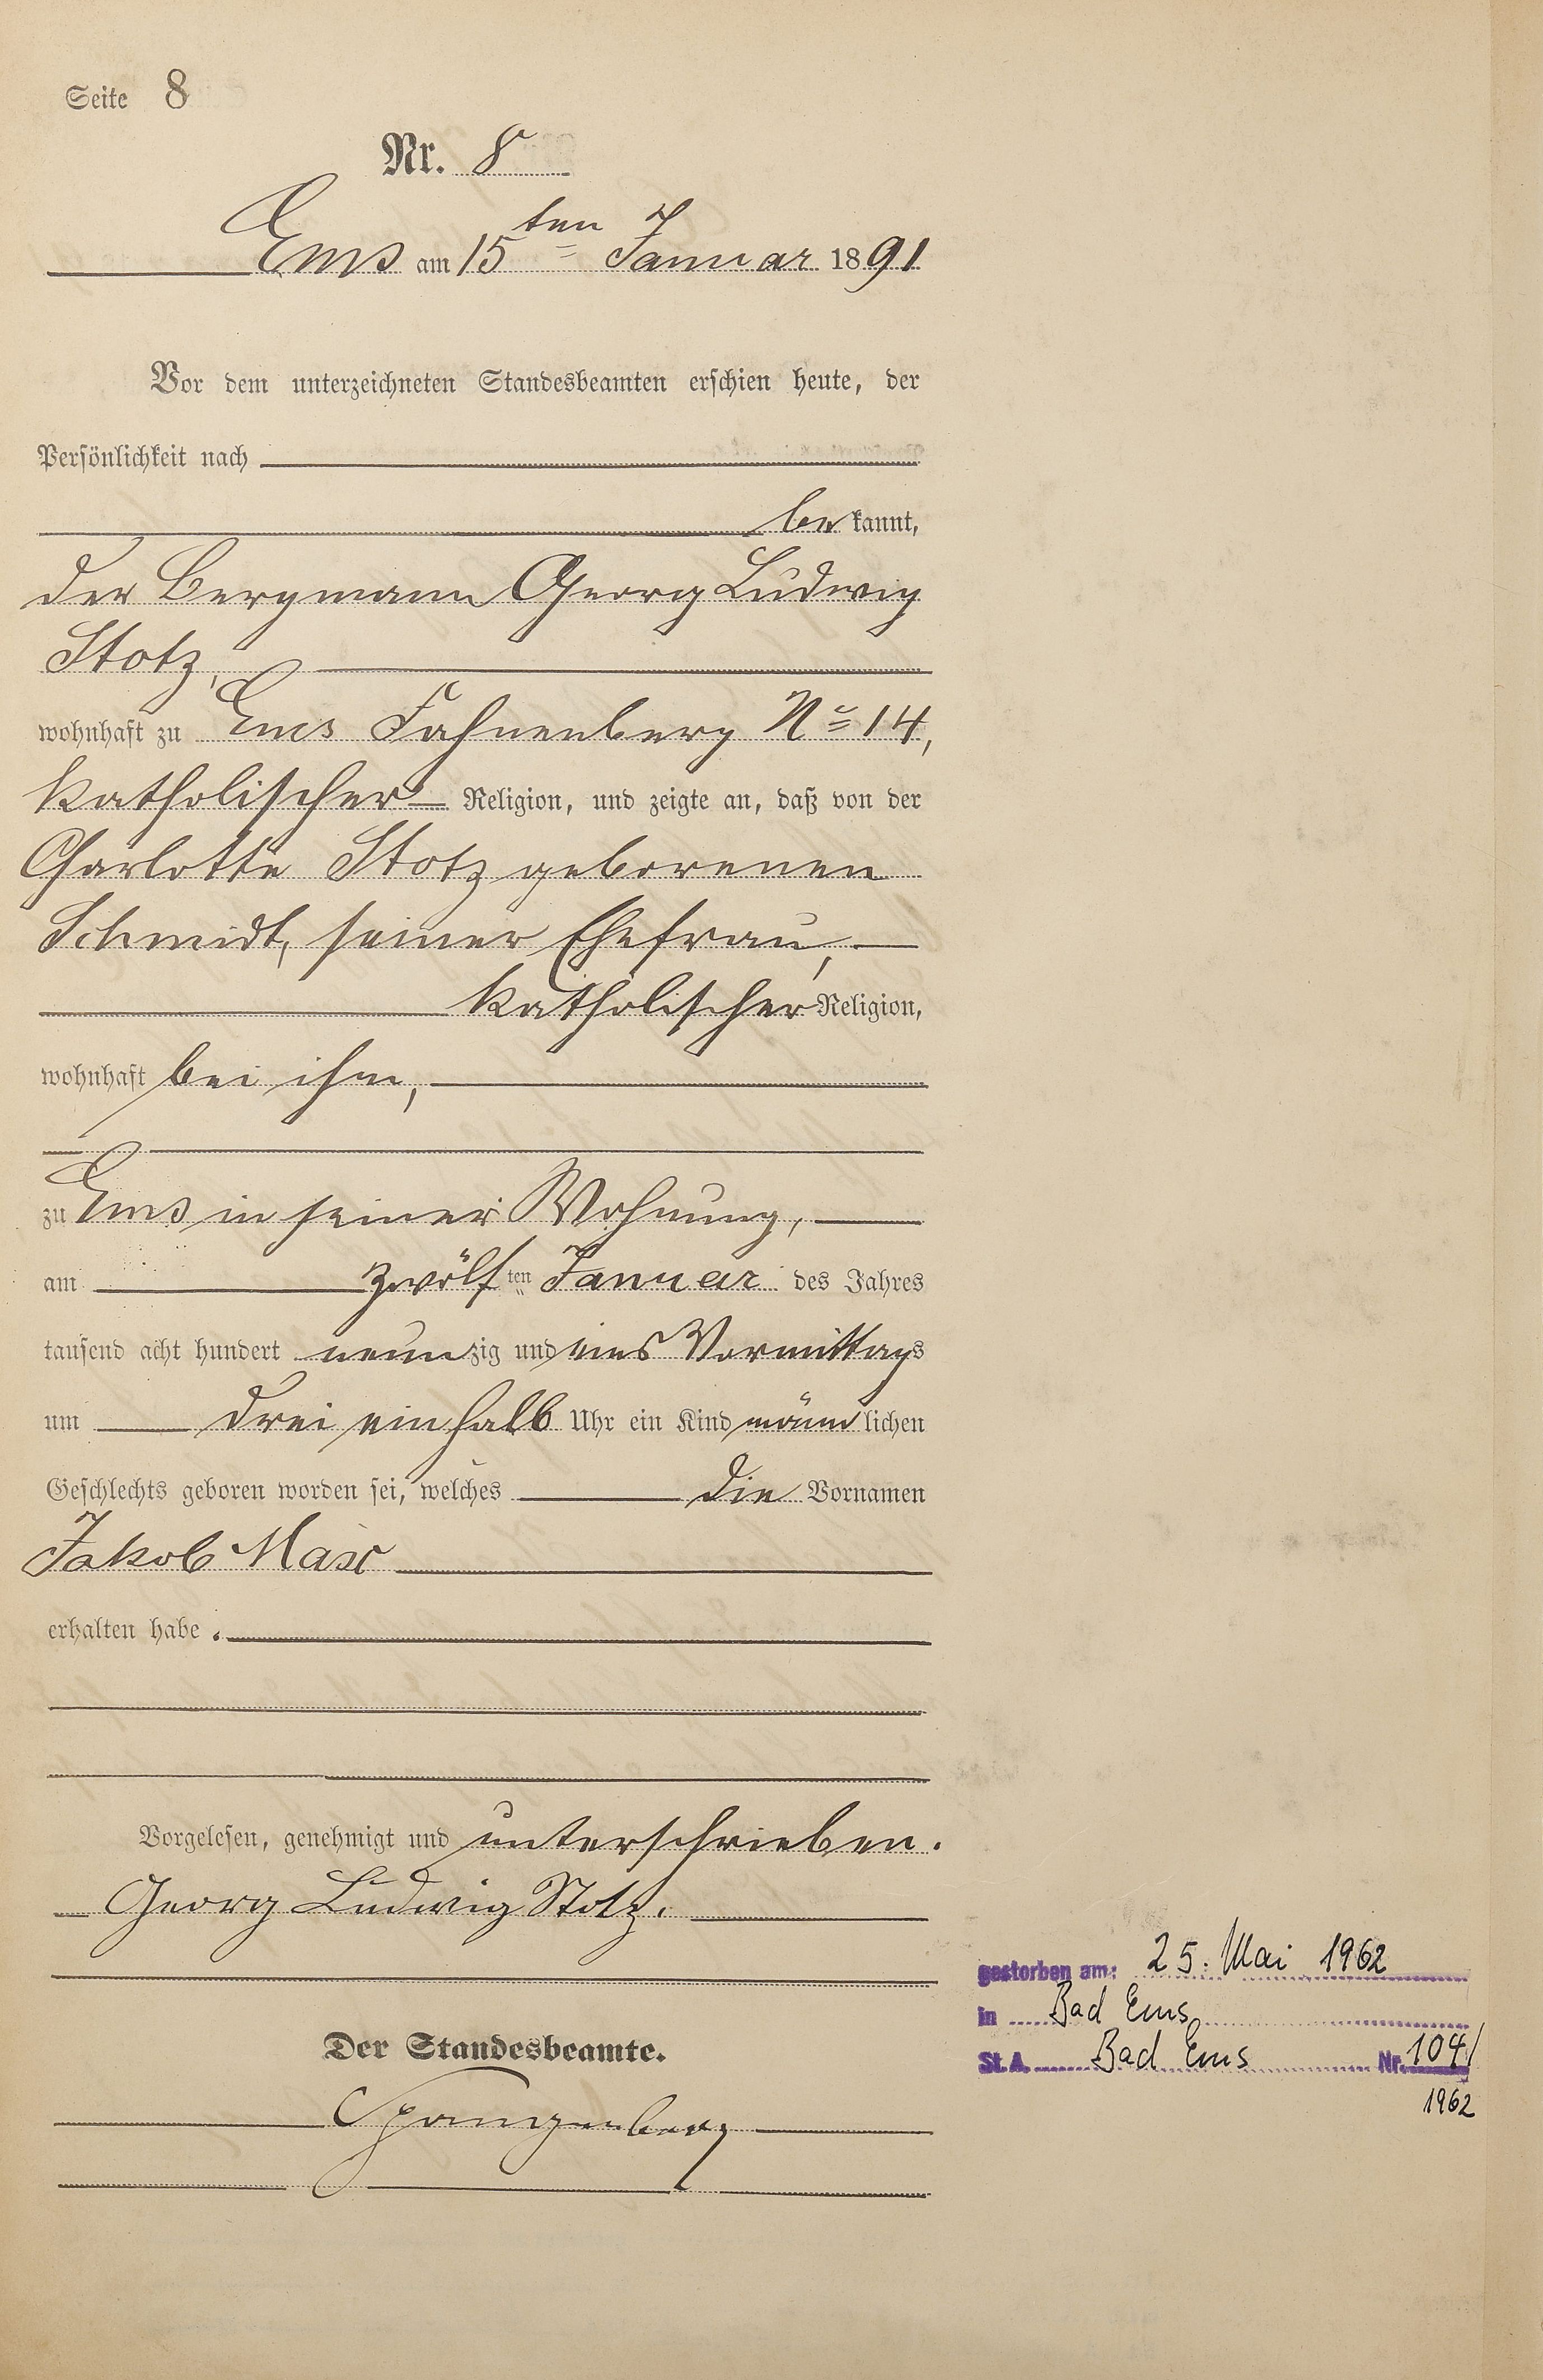 Seite 8
Nr. 8
Ems am 15ten Januar 1891
Vor dem unterzeichneten Standesbeamten erschien heute, der
Persönlichkeit nach
bekannt,
der Bergmann Georg Ludwig
Stotz,
wohnhaft zu Ems Fahnenberg No 14,
katholischer Religion, und zeigte an, daß von der
Charlotte Stotz geborenen
Schmidt, seiner Ehefrau,
katholischer Religion,
wohnhaft bei ihm,
zu Ems in seiner Wohnung,
am zwölften Januar des Jahres
tausend acht hundert neunzig und eins Vormittags
um drei ein halb Uhr ein Kind männlichen
Geschlechts geboren worden sei, welches die Vornamen
Jakob Max
erhalten habe.
Vorgelesen, genehmigt und unterschrieben.
Georg Ludwig Stotz.
Der Standesbeamte.
Spangenberg
gestorben am: 25. Mai 1962
in Bad Ems
St. A. Bad Ems Nr. 104/
1962